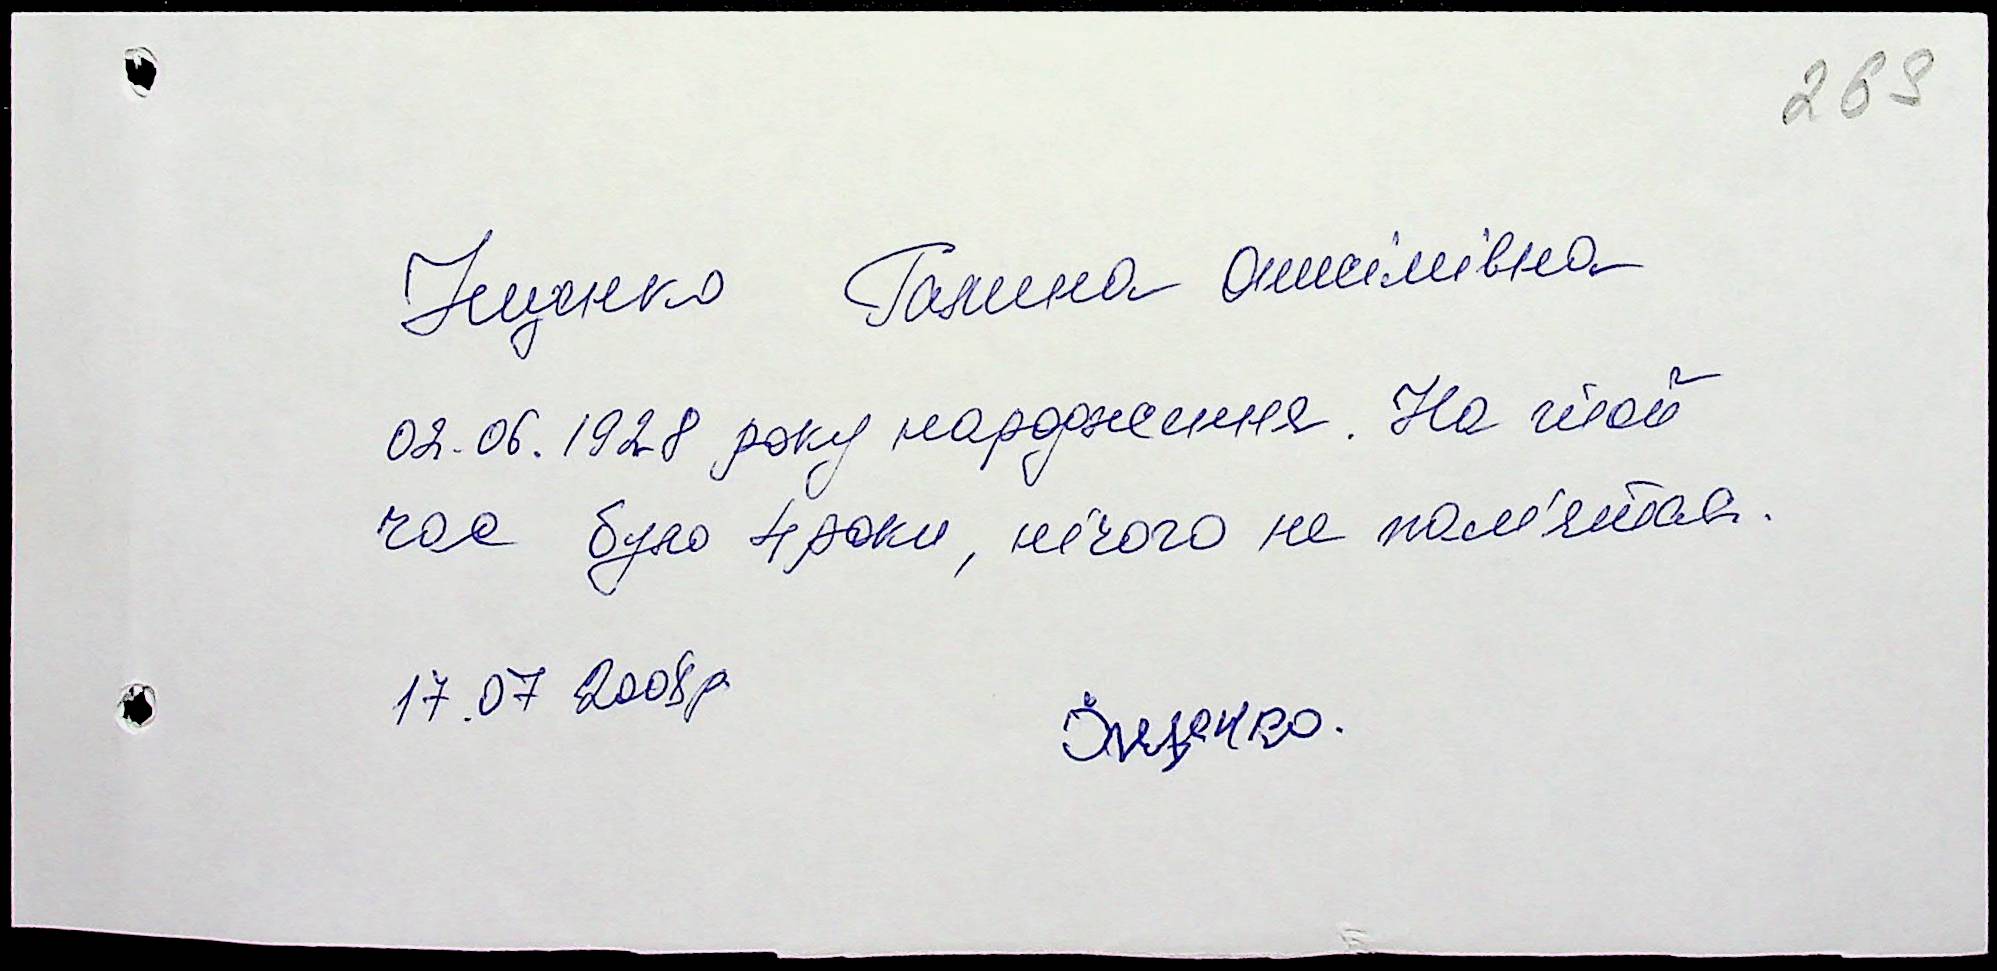 269
Іщенко Галина Онисімівна
02.06.1928 року народження. На той
час було 4 роки, нічого не пам'ятає.
17.07 2008р
Іщенко.